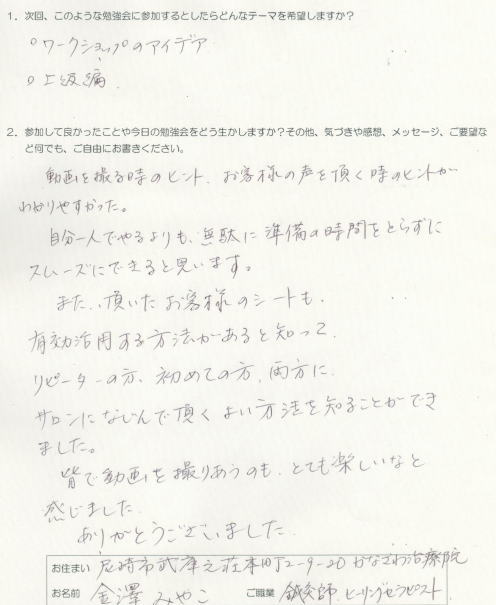 1．次回、このような勉強会に参加するとしたらどんなテーマを希望しますか？
○ワークショップのアイデア
○上級編
2．参加して良かったことや今日の勉強会をどう生かしますか？その他、気づきや感想、メッセージ、ご要望な
ど何でも、ご自由にお書きください。
動画を撮る時のヒント、お客様の声を頂く時のヒントが
わかりやすかった。
自分一人でやるよりも、無駄に準備の時間をとらずに
スムーズにできると思います。
また、頂いたお客様のシートも、
有効活用する方法があると知って、
リピーターの方、初めての方、両方に、
サロンになじんで頂くよい方法を知ることができ
ました。
皆で動画を撮りあうのも、とても楽しいなと
感じました。
ありがとうございました。
お住まい 尼崎市武庫之荘本町2-9-20 かなざわ治療院
お名前 金澤 みやこ ご職業 鍼灸師 ヒーリングセラピスト